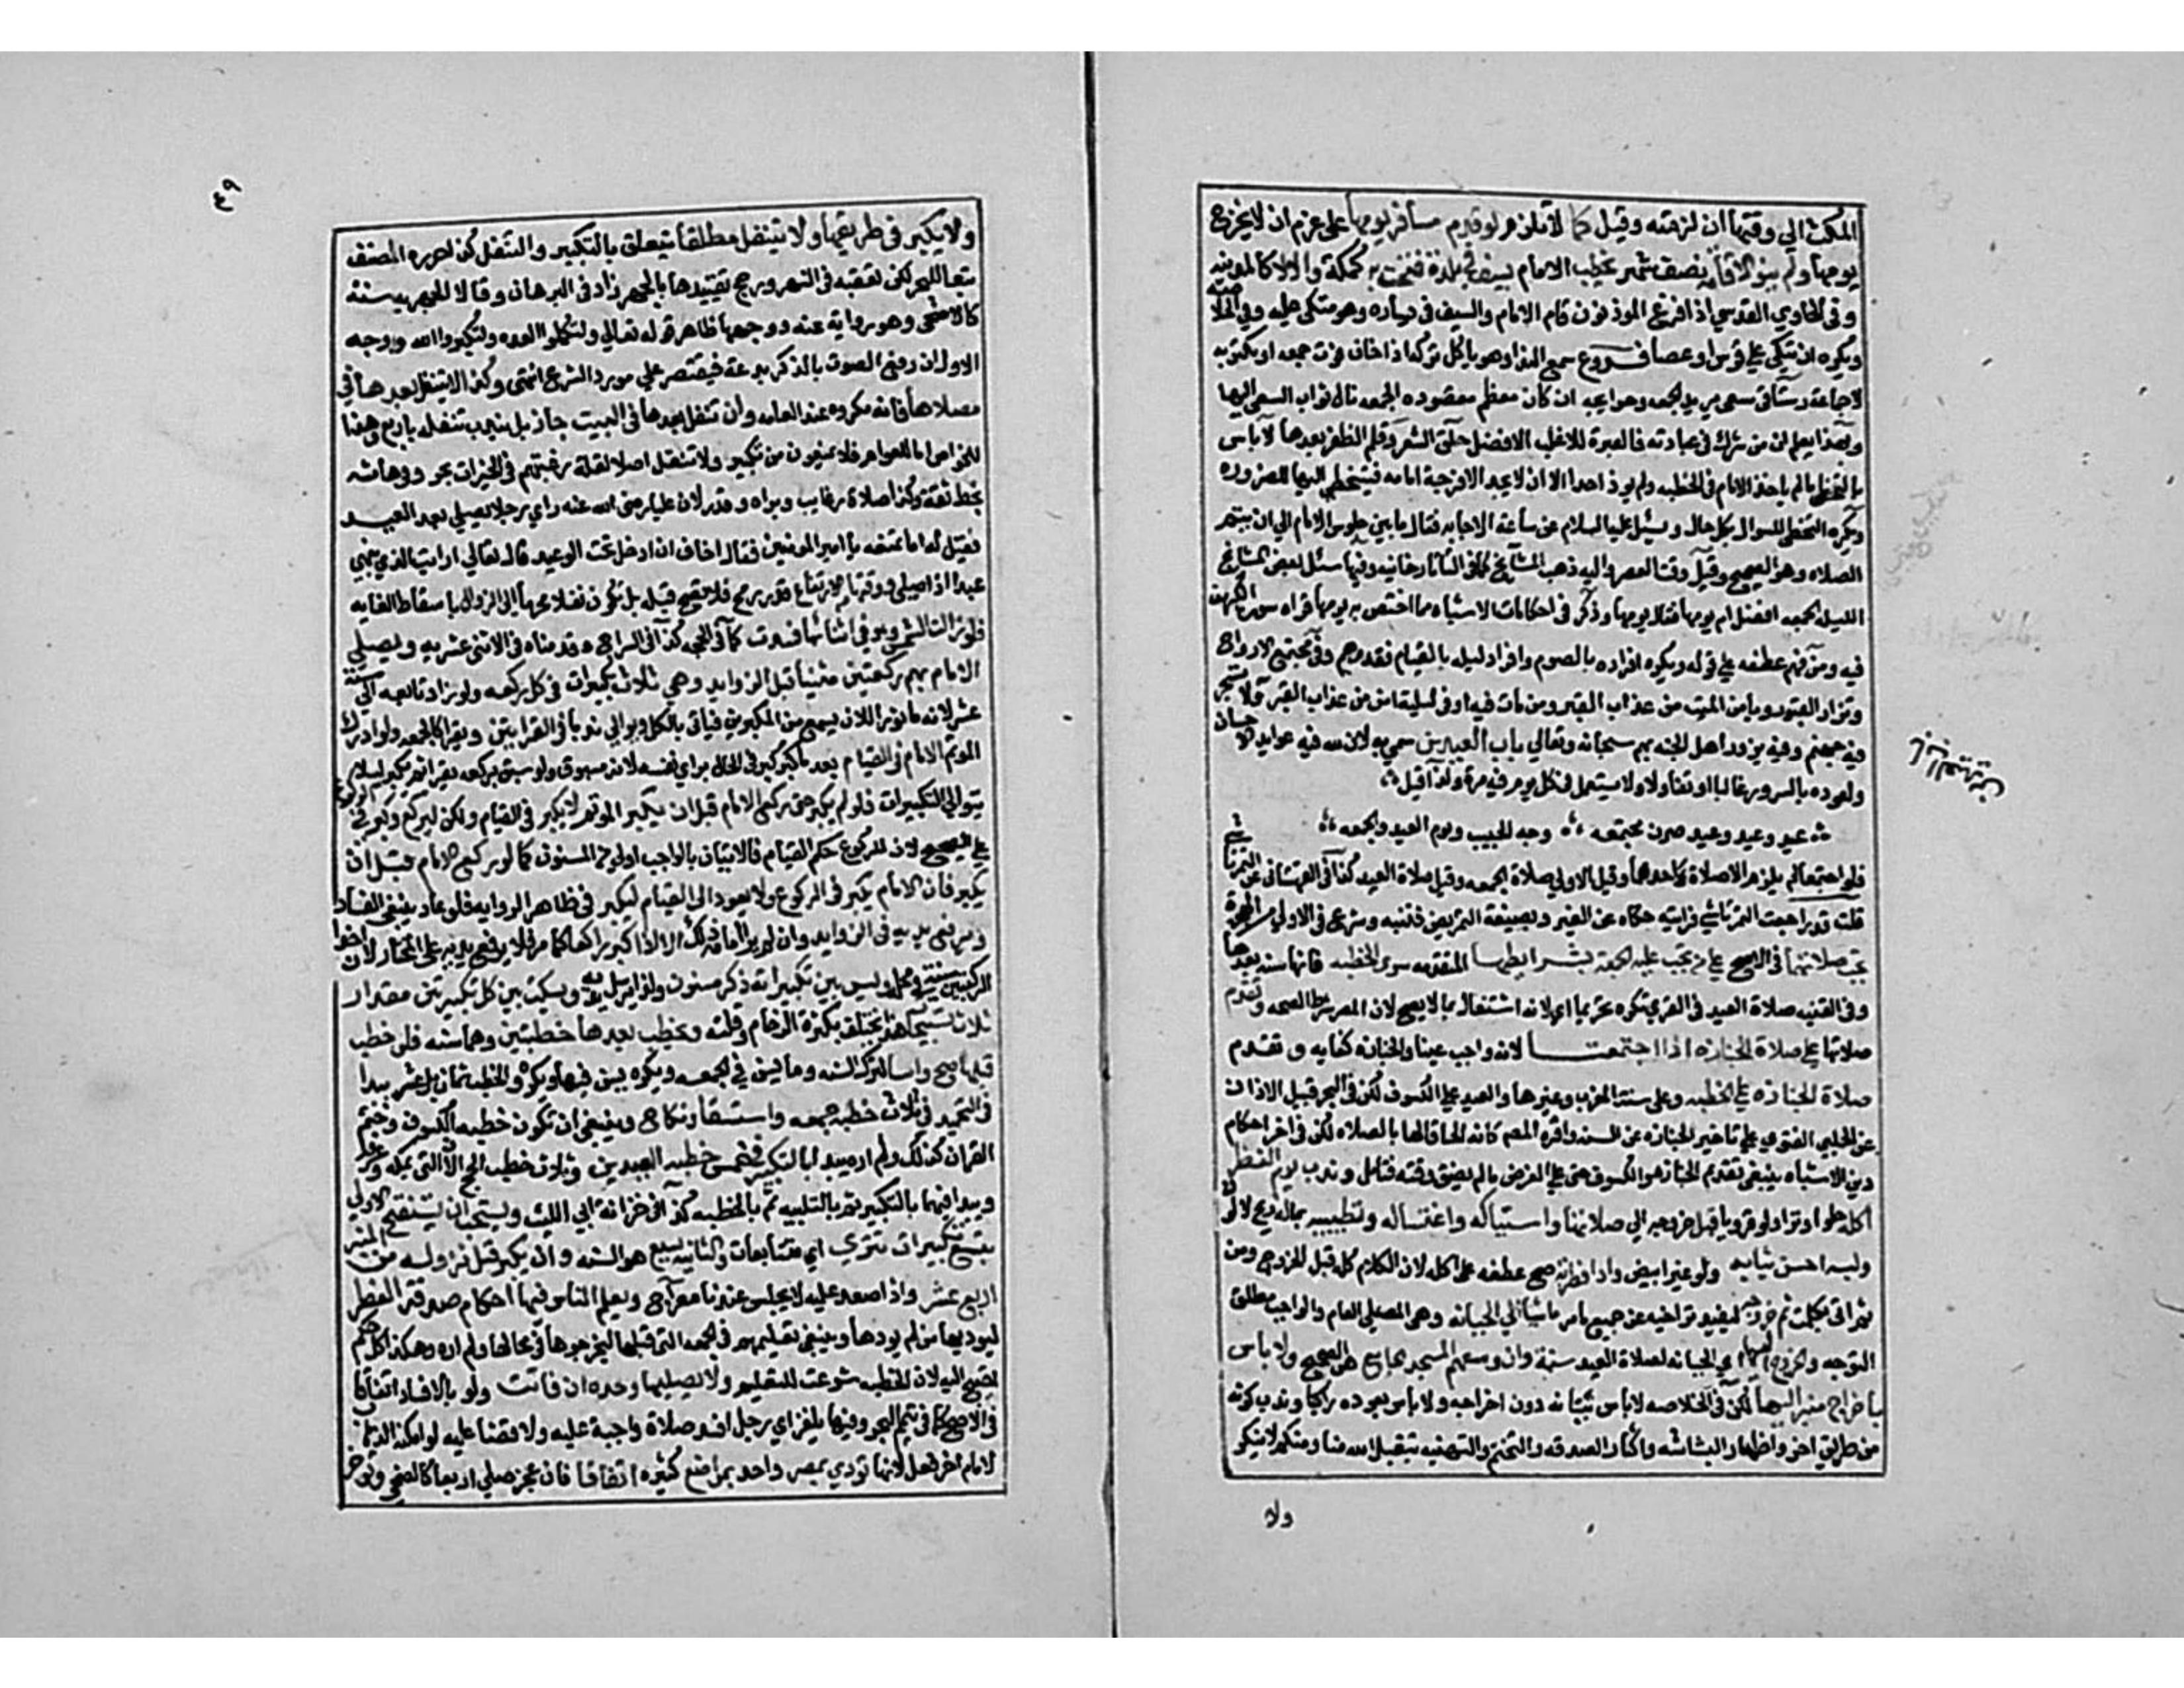 المكث الي وقتها ان لزمته وقيل كما لا تلزم لو قدم مسافر يومها على عزم ان لا يخرج
يومها ولم ينو الاقامة نصف شهر يخطب الامام بسيف في بلدة فتحت به كمكة والا لا كالمدينه
وفي الحاوي القدسي اذا فرغ الموذنون قام الامام والسيف في يساره وهو متكي عليه وفي الخلاصه
ويكره ان يتكي علي قوس او عصا فروع سمع الندا وهو ياكل تركه اذا خاف فوت جمعه او مكتوبه
لا جماعة رستاقي سعى يريد الجمعه وحوايجه ان كان معظم مقصوده الجمعه نال ثواب السعي اليها
وبهذا يعلم ان من شرك في عبادته فالعبرة للاغلب الافضل حلق الشعر وقلم الظفر بعدها لا باس
بالتخطي ما لم ياخذ الامام في الخطبه ولم يوذ احدا الا ان لا يجد الا فرجة امامه فيتخطى اليها للضروره
ويكره التخطي للسوال بكل حال وسئل عليه السلام عن ساعة الاجابه فقال ما بين جلوس الامام الي ان يتم
الصلاه وهو الصحيح وقيل وقت العصر واليه ذهب المشايخ كما في التاتارخانيه وفيها سئل بعض المشايخ
الليلة الجمعه افضل ام يومها فقال يومها وذكر في احكامات الاشباه مما اختص به يومها قراه سورة الكهف
فيه ومن فهم عطفه علي قوله ويكره افراده بالصوم وافراد ليله بالقيام فقد وهم وفيه تجتمع الارواح
وتزار القبور ويامن الميت من عذاب القبر ومن مات فيه او في ليلته امن من عذاب القبر ولا تسجر
فيه جهنم وفيه يزور اهل الجنه ربهم سبحانه وتعالي باب العيدين سمي به لان لله فيه عوايد الاحسان
ولعوده بالسرور غالبا او تفاولا ولا يستعمل في كل يوم فيه مسرة ولذا قيل
عيد وعيد وعيد صرن مجتمعه وجه الحبيب ويوم العيد والجمعه
فلو اجتمعا لم يلزم الا صلاة احدهما وقيل الاولي صلاة الجمعه وقيل صلاة العيد كذا في القهستاني عن التمرتاشي
قلت قد راجعت التمرتاشي فرايته حكاه عن الغير وبصيغة التمريض فتنبه وشرع في الاولي من الهجرة
تجب صلاتهما في الاصح علي من تجب عليه الجمعة بشرايطها المتقدمه سوي الخطبه فانها سنه بعدها
وفي القنيه صلاة العيد في القري تكره تحريما اي لانه اشتغال بما لا يصح لان المصر شرط الصحه وتقدم
صلاتها علي صلاة الجنازه اذا اجتمعتا لانه واجب عينا والجنازه كفايه وتقدم
صلاة الجنازه علي الخطبه وعلى سنة المغرب وغيرها والعيد علي الكسوف لكن في البحر قبيل الاذان
عن الحلبي الفتوي علي تاخير الجنازه عن السنه واقره المصنف كانه الحاقا لها بالصلاه لكن في اخر احكام
دين الاشباه ينبغي تقديم الجنازه والكسوف حتى علي الفرض ما لم يضق وقته فتامل وندب يوم الفطر
اكله حلوا وترا ولو قرويا قبل خروجه الي صلاتها واستياكه واغتساله وتطيبه بماله ريح لا لون
ولبسه احسن ثيابه ولو غير ابيض وادا فطرته صح عطفه على اكله لان الكلام كله قبل الخروج ومن
ثم اتى بكلمت ثم خروجه ليفيد تراخيه عن جميع ما مر ماشيا الي الجبانه وهي المصلي العام والواجب مطلق
التوجه والخروج اليها اي الجبانه لصلاة العيد سنة وان وسعهم المسجد الجامع هو الصحيح ولا باس
باخراج منبر اليها لكن في الخلاصه لا باس ببنايه دون اخراجه ولا باس بعوده راكبا وندب كونه
من طريق اخر واظهار البشاشه واكثار الصدقه والتختم والتهنيه بتقبل الله منا ومنكم لا ينكر
ولا
٤٩
ولا يكبر في طريقها ولا يتنفل مطلقا يتعلق بالتكبير والتنفل كذا حرره المصنف
تبعا للبحر لكن تعقبه في النهر ورجح تقييدها بالجهر زاد في البرهان وقالا للجهر به سنة
كالاضحى وهو رواية عنه ووجهها ظاهر قوله تعالي ولتكملوا العده ولتكبروا الله ووجه
الاول ان رفع الصوت بالذكر بدعة فيقتصر علي مورد الشرع انتهى وكذا لا يتنفل بعدها في
مصلاها فانه مكروه عند العامه وان تنفل بعدها في البيت جاز بل يندب تنفله باربع وهذا
للخواص اما العوام فلا يمنعون من تكبير ولا تنفل اصلا لقلة رغبتهم في الخيرات بحر وفي هامشه
بخط ثقة وكذا صلاة رغايب وبراه وقدر لان عليا رضى الله عنه راي رجلا يصلي بعد العيد
فقيل له اما تمنعه يا امير المومنين فقال اخاف ان ادخل تحت الوعيد قال تعالي ارايت الذي ينهى
عبدا اذا صلى ووقتها من الارتفاع قدر رمح فلا تصح قبله بل تكون نفلا محرما الي الزوال باسقاط الغايه
فلو زالت الشمس وهو في اثنائها فسدت كما في الجمعه كذا في السراج وقدمناه في الاثنى عشريه ويصلي
الامام بهم ركعتين مثنيا قبل الزوايد وهي ثلاث تكبيرات في كل ركعه ولو زاد تابعه الى ستة
عشر لانه ماثور الا ان يسمع من المكبرين فياتي بالكل ويوالي ندبا في القراءتين ويقرا كالجمعه ولو ادرك
الموتم الامام في القيام بعد ما كبر كبر في الحال براي نفسه لانه مسبوق ولو سبق بركعه يقرا ثم يكبر ليلا
يتوالى التكبيرات فلو لم يكبر حتى ركع الامام قبل ان يكبر الموتم لا يكبر في القيام ولكن يركع ويكبر في ركوعه
علي الصحيح لان للركوع حكم القيام فالاتيان بالواجب اولي من المسنون كما لو ركع الامام قبل ان
يكبر فان الامام يكبر في الركوع ولا يعود الى القيام ليكبر في ظاهر الروايه فلو عاد ينبغي الفساد
ويرفع يديه في الزوايد وان لم ير امامه ذلك الا اذا كبر راكعا كما مر فلا يرفع يديه على المختار لان اخذ
الركبتين سنة في محله وليس بين تكبيراته ذكر مسنون ولذا يرسل يديه ويسكت بين كل تكبيرتين مقدار
ثلاث تسبيحات هذا يختلف بكثرة الزحام وقلته ويخطب بعدها خطبتين وهما سنه فلو خطب
قبلها صح واسا لترك السنه وما يسن في الجمعه ويكره يسن فيها ويكره والخطب ثمان بل عشر يبدا
في التحميد في ثلاث خطبة جمعه واستسقا ونكاح وينبغي ان تكون خطبة الكسوف وختم
القران كذلك ولم اره ويبدا بالتكبير في خمس خطبة العيدين وثلاث خطب الحج الا ان التى بمكه وعرفه
ويبدا فيها بالتكبير ثم بالتلبيه ثم بالخطبه كذا في خزانة ابي الليث ويستحب ان يستفتح الاولي
بتسع تكبيرات تتري اي متتابعات والثانيه بسبع هو السنه وان يكبر قبل نزوله من المنبر
اربع عشر واذا صعد عليه لا يجلس عندنا معراج ويعلم الناس فيها احكام صدقة الفطر
ليوديها من لم يودها وينبغي تعليمهم في الجمعه التى قبلها ليخرجوها في محالها ولم اره وهكذا كل حكم
احتيج اليه لان الخطبه شرعت للتعليم ولا يصليها وحده ان فاتت ولو بالافساد اتفاقا
في الاصح كما في تيمم البحر وفيها يلغز اي رجل افسد صلاة واجبة عليه ولا قضا عليه ولو امكنه الذهاب
لامام اخر فعل لانها تودي بمصر واحد بمواضع كثيره اتفاقا فان عجز صلي اربعا كالضحى وتوخر